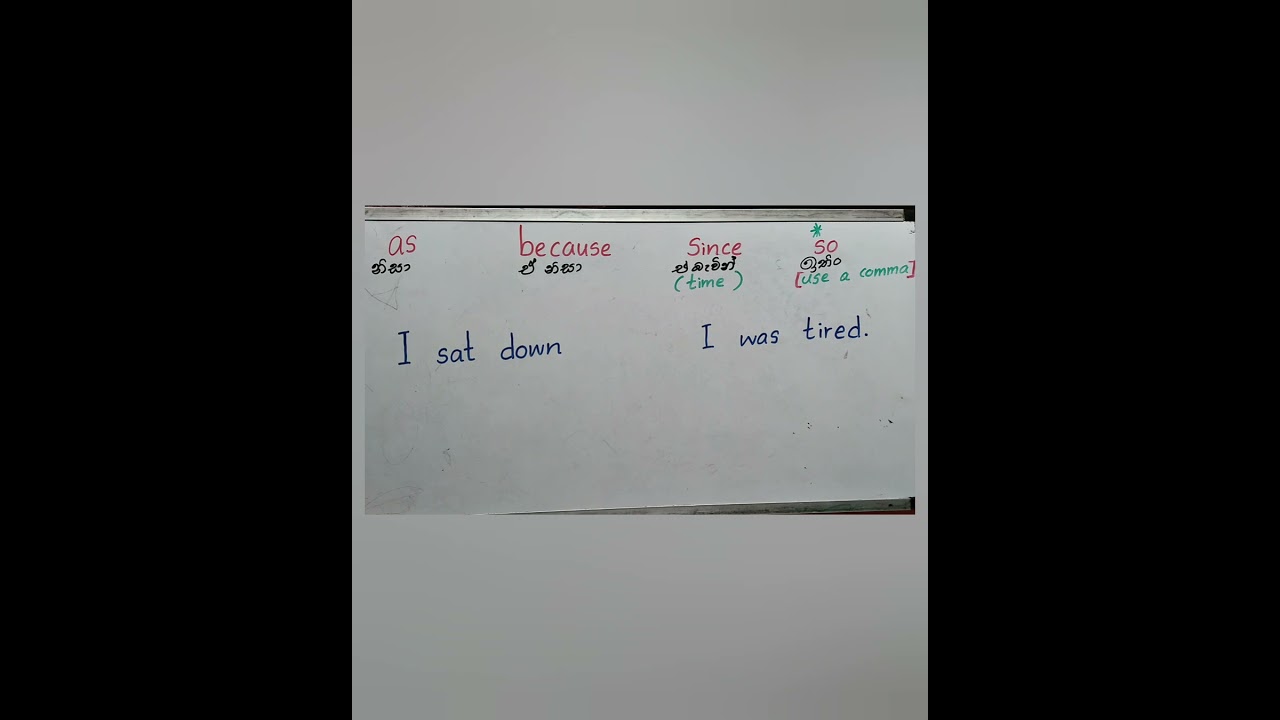 as because Since *so
නිසා ඒ නිසා එබැවින් ඉතිං
(time) [use a comma]
I sat down I was tired.